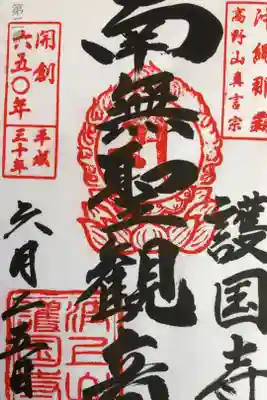 沖縄那覇
高野山真言宗
護国寺
南無聖観音
開創
六五〇年
平成
三十年
六月二五日
波上山
護国寺